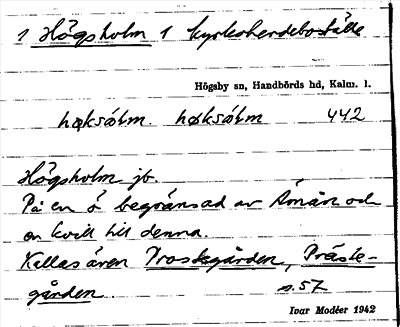 1 Högsholm 1 kyrkoherdeboställe
Högsby sn, Handbörds hd, Kalm. l.
høksólm høksólm 442
Högsholm jb.
På en ö begränsad av Åmån och
en kvill till denna.
Kallas även Prostgården, Präste-
gården s. 57
Ivar Modéer 1942